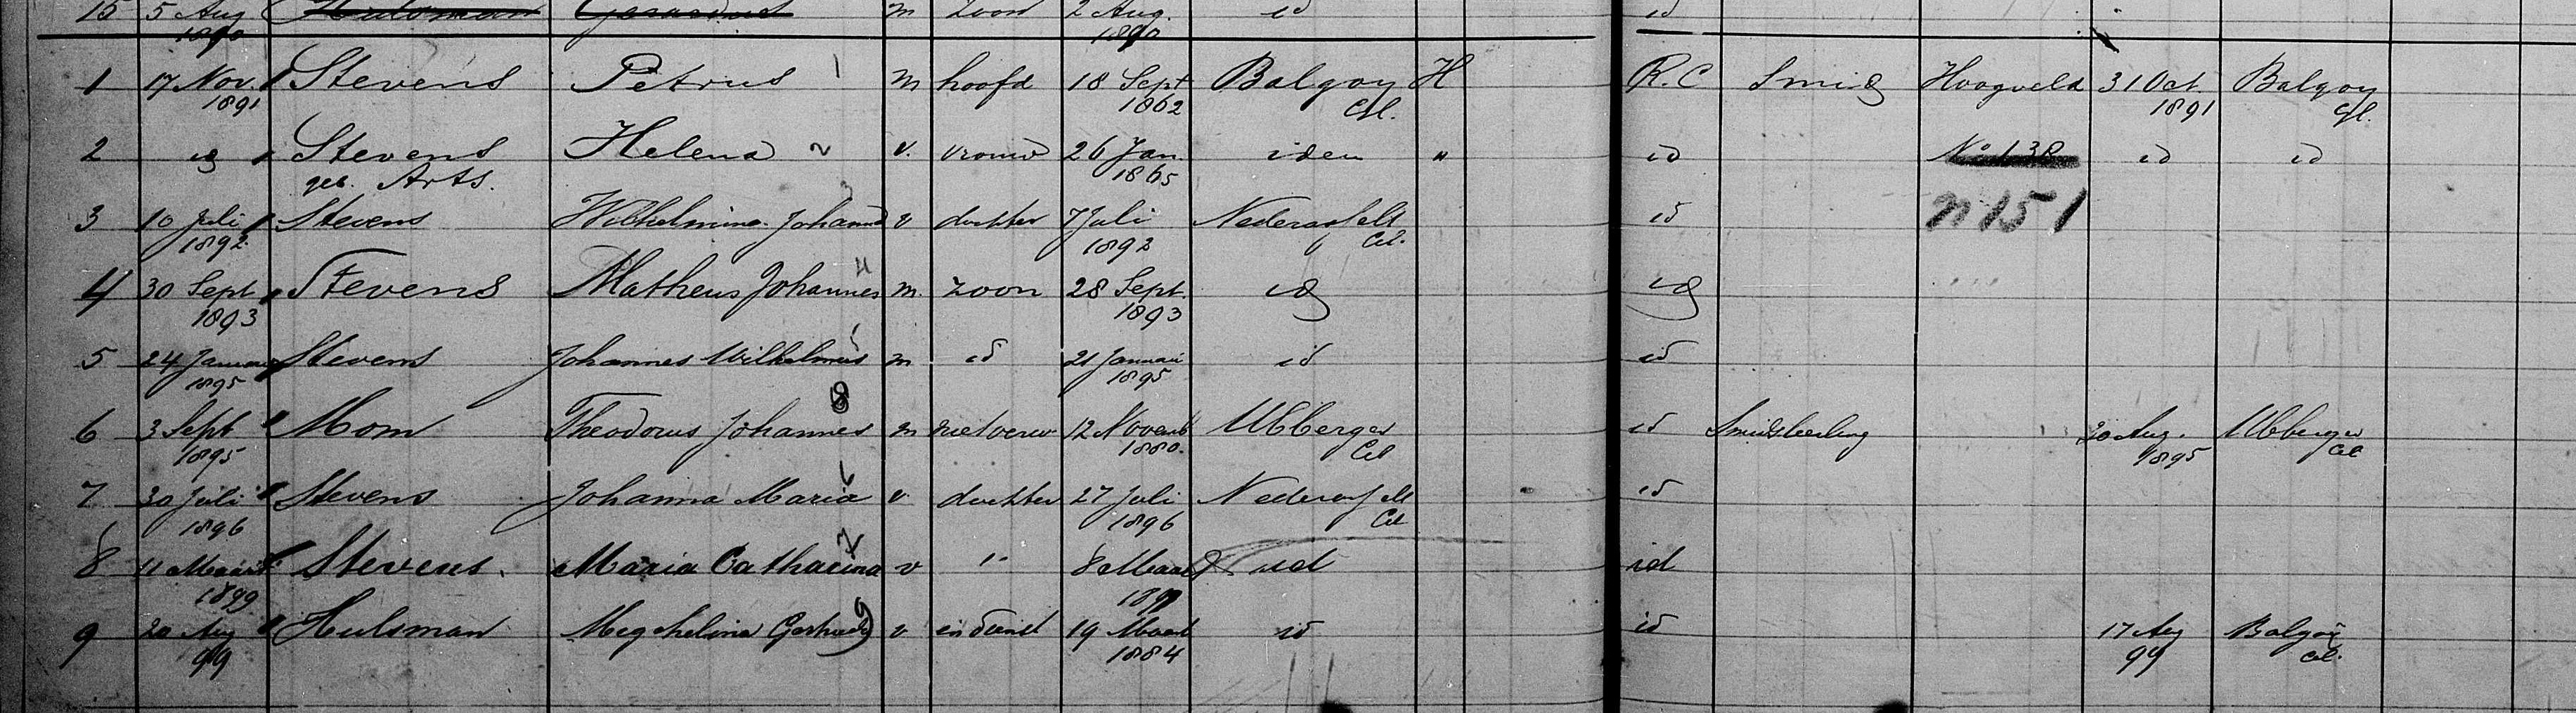 15 5 Aug 1890 Hulsman Gerardus m zoon 2 Aug. 1890 id id
1 17 Nov. 1891 Stevens Petrus 1 m hoofd 18 Sept 1862 Balgoy Gl. H R.C Smid Hoogveld 31 Oct. 1891 Balgoy Gl.
2 id Stevens geb. Arts. Helena 2 v. vrouw 26 Jan. 1865 idem " id No 138 id id
3 10 Juli 1892 Stevens Wilhelmina Johanna 3 v dochter 7 Juli 1892 Nederasselt Gel. id n 151
4 30 Sept 1893 Stevens Matheus Johannes 4 m. zoon 28 Sept. 1893 id id
5 24 Januari 1895 Stevens Johannes Wilhelmus 5 m id 21 Januari 1895 id id
6 3 Sept 1895 Mom Theodorus Johannes 8 m niet verw 12 Novemb 1880. Ubbergen Gel id Smidsleerling 20 Aug. 1895 Ubbergen Gel
7 30 Juli 1896 Stevens Johanna Maria 6 v dochter 27 Juli 1896 Nederasselt Gel id
8 11 Maart 1899 Stevens. Maria Catharina 7 v " 8 Maart 1899 id id
9 20 Aug 99 Hulsman Megchelina Gertruda 9 v in dienst 19 Maart 1884 id id 17 Aug 99 Balgoy Gel.